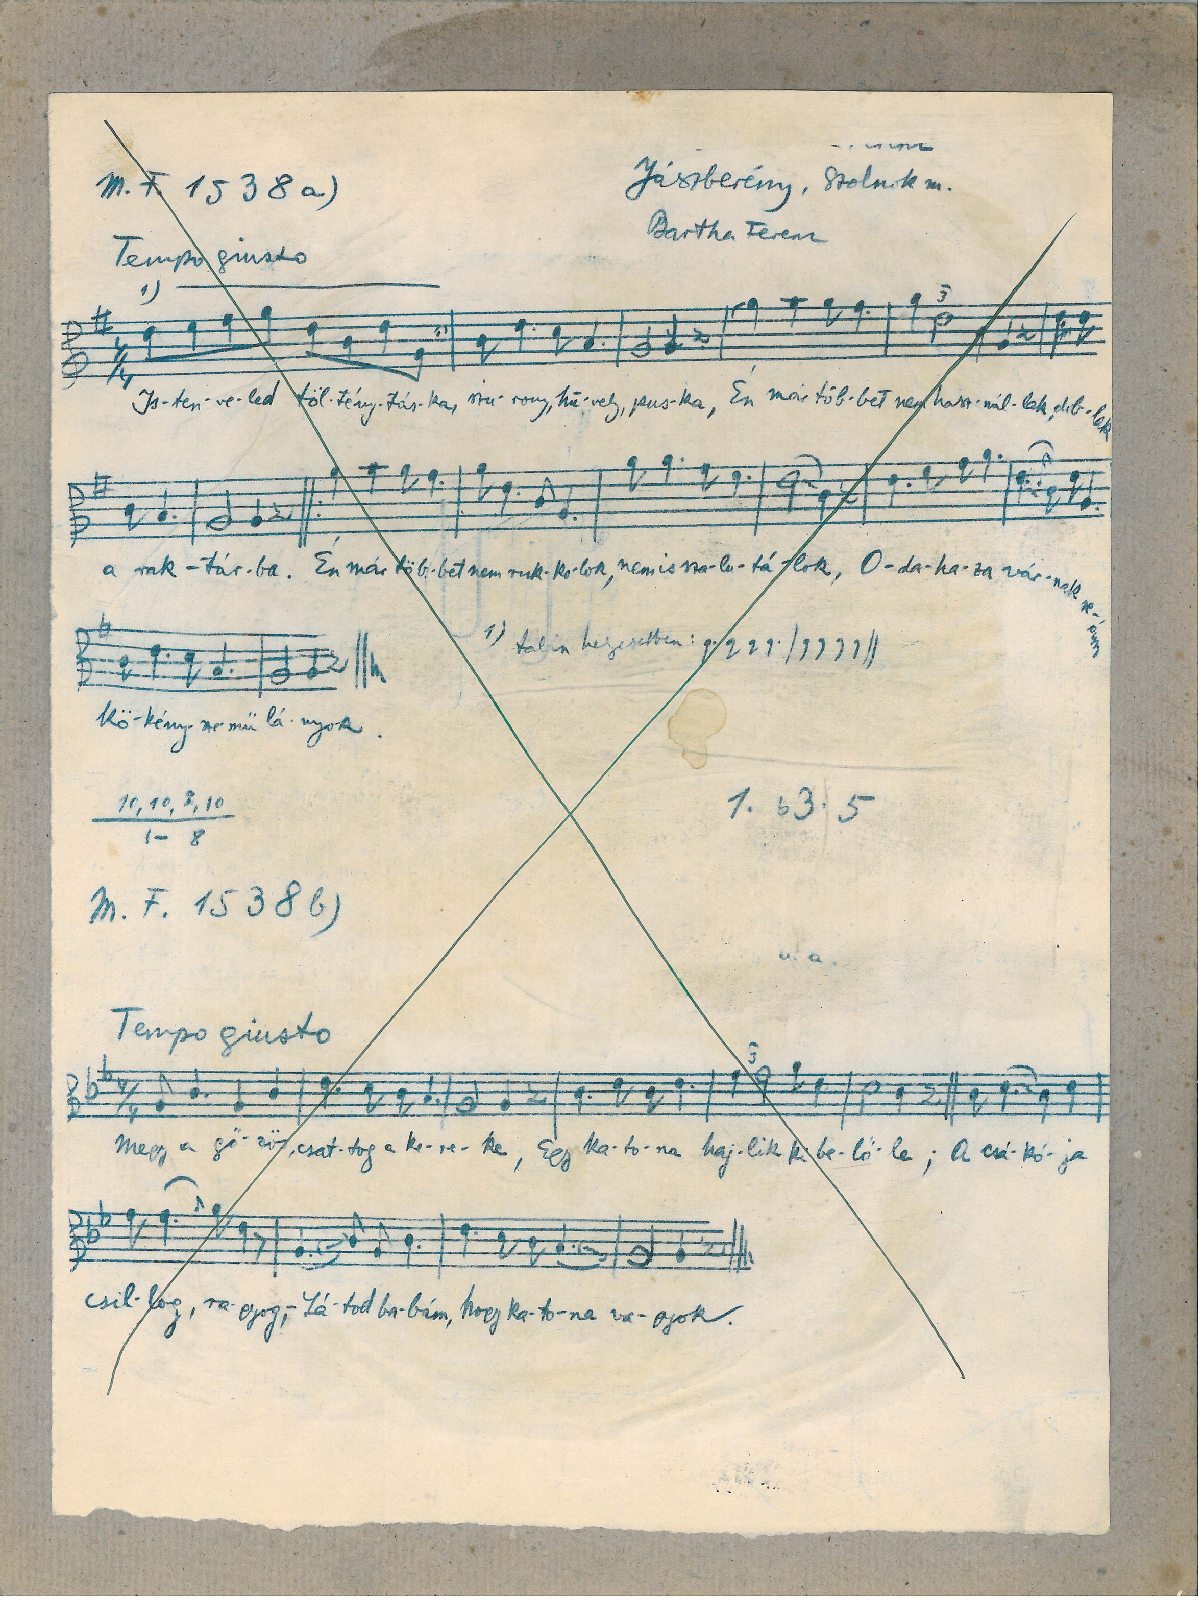 M. F. 1538 a)
Jászberény, Szolnok m.
Bartha Ferenc
Tempo giusto
1)
3
4/4
Is-ten-ve-led töl-tény-tás-ka, szu-rony, hü-vely, pus-ka, Én már töb-bet nem hasz-nál-lak,
a rak-tár-ba. Én már töb-bet nem ruk-ko-lok, nem is sza-lu-tá-lok, O-da-ha-za vár-nak re-ám
1) talán helyesebben:
kö-kény-sze-mü lá-nyok.
10, 10, 8, 10
1- 8
1. b3 5
M. F. 1538 b)
u. a.
Tempo giusto
3
4/4
Megy a gö-zös, csat-tog a ke-re-ke, Egy ka-to-na haj-lik ki be-lö-le; A csá-kó-ja
csil-log, ra-gyog,- Lá-tod ba-bám, hogy ka-to-na va-gyok.